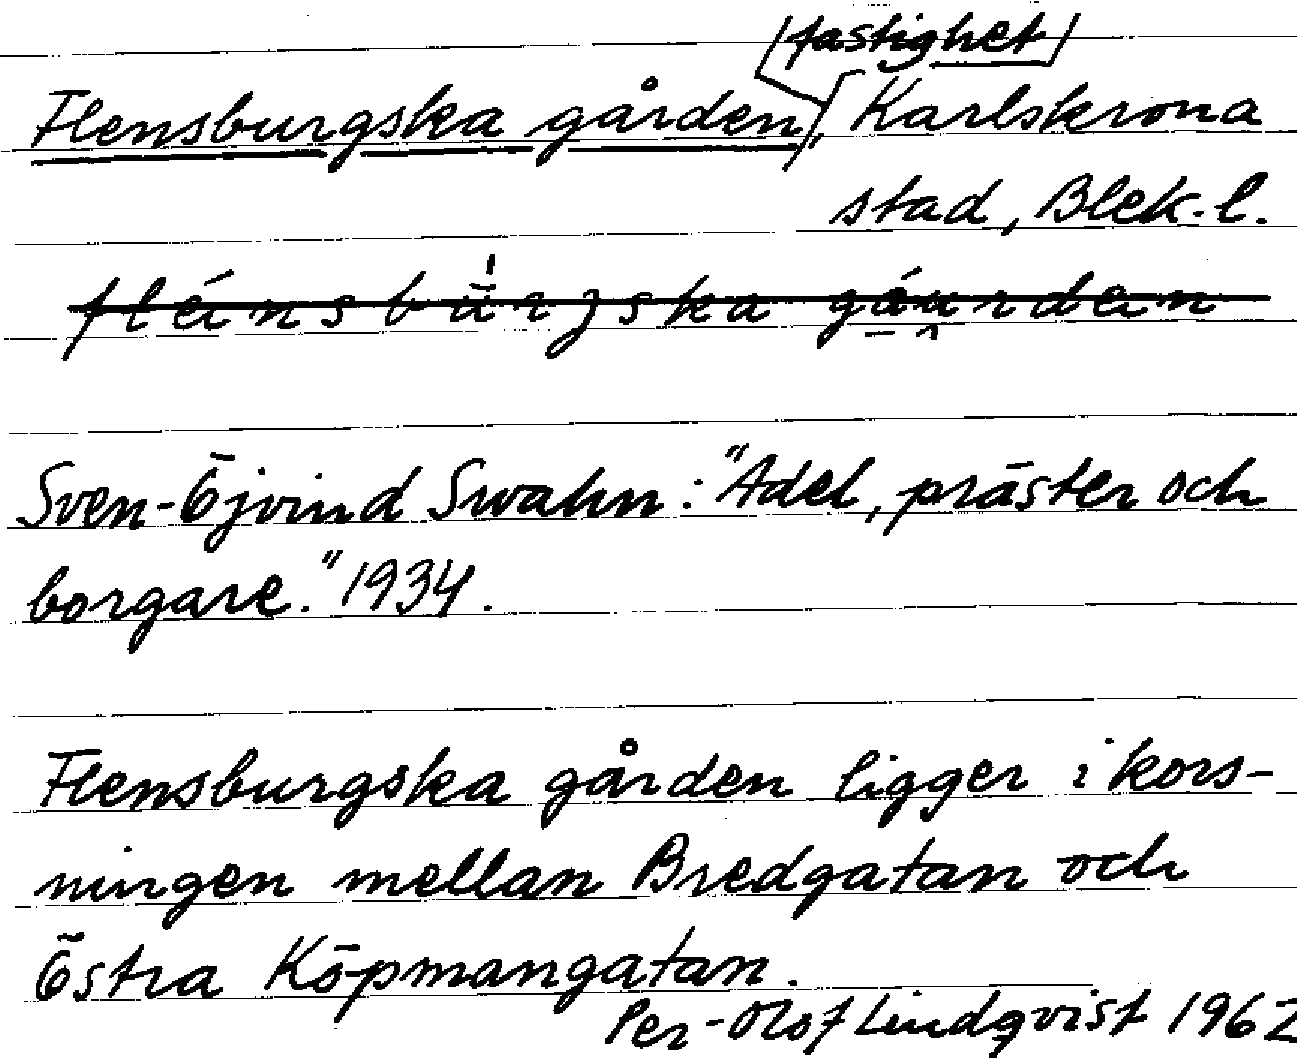 fastighet
Flensburgska gården, Karlskrona
stad, Blek. l.
Sven-Öjvind Swahn: "Adel, präster och
borgare." 1934.
Flensburgska gården ligger i kors-
ningen mellan Bredgatan och
Östra Köpmangatan.
Per-Olof Lindqvist 1962